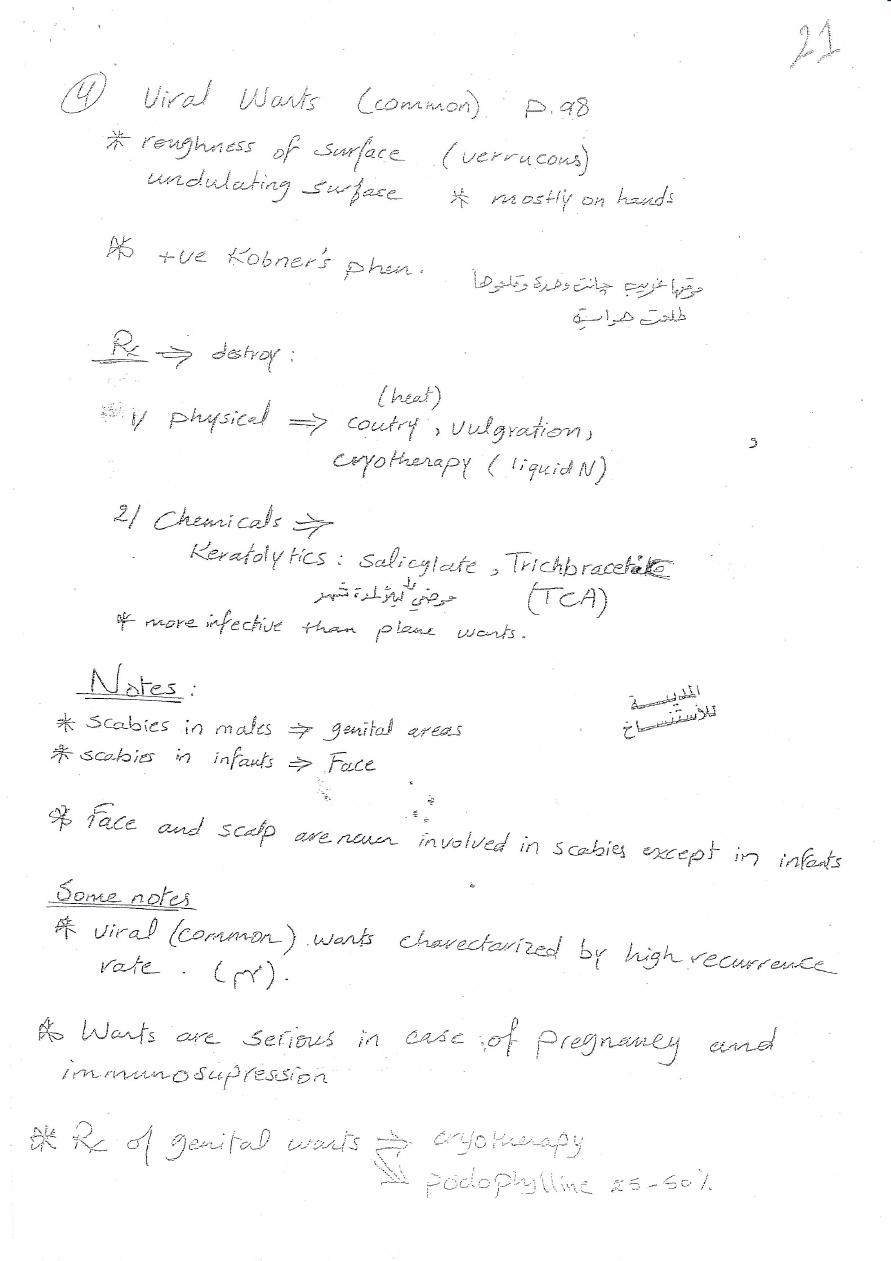 21
④ Viral Warts (common) p.98
* roughness of surface (verrucous)
undulating surface * mostly on hands
* +ve Kobner's phen.
موقعها غريب چانت وحدة وقلعوها
طلعت هواية
Rx ⇒ destroy :
(heat)
1/ physical ⇒ coutry , vulgration ,
cryotherapy ( liquid N)
2/ Chemicals ⇒
Keratolytics : salicylate , Trichloracetate
(TCA)
* more infective than plane warts.
Notes :
المدينة
للأستنساخ
* Scabies in males ⇒ genital areas
* scabies in infants ⇒ Face
* Face and scalp are never involved in scabies except in infants
Some notes
* viral (common) warts charectarized by high recurrence
rate .
* Warts are serious in case of pregnancy and
immunosupression
* Rx of genital warts ⇒ cryotherapy
⇒ podophylline 25-50%